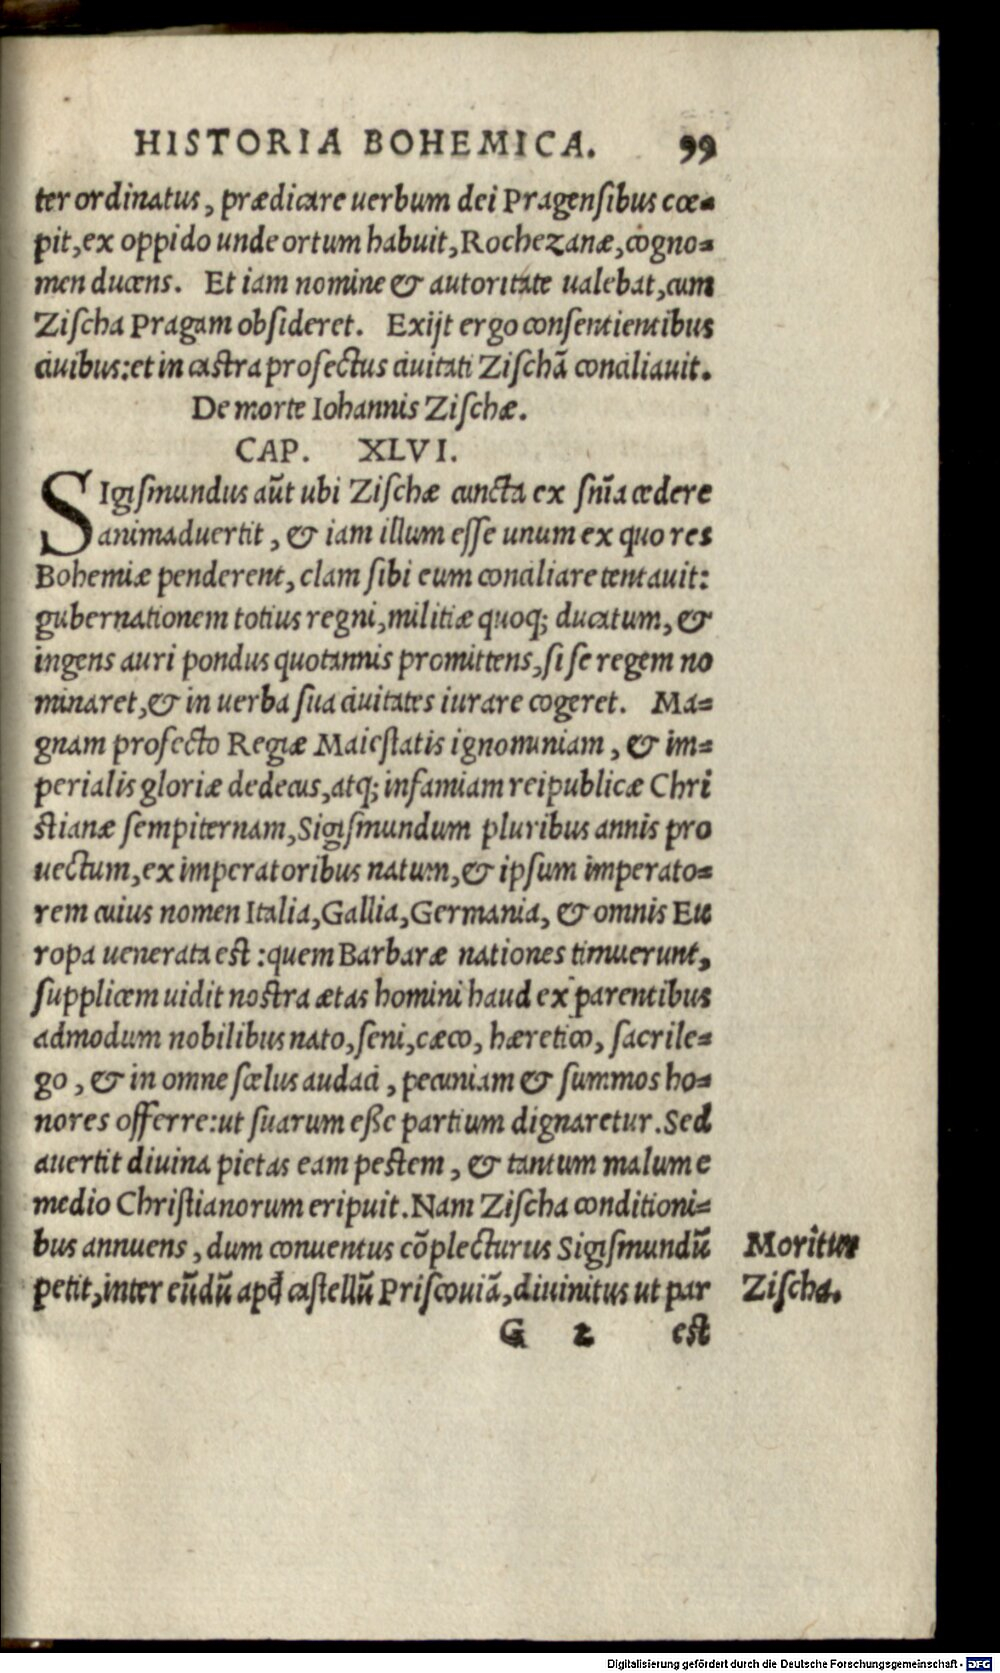 HISTORIA BOHEMICA. 99
ter ordinatus, prædicare uerbum dei Pragensibus cœ-
pit, ex oppido unde ortum habuit, Rochezanæ, cogno-
men ducens. Et iam nomine & autoritate ualebat, cum
Zischa Pragam obsideret. Exijt ergo consentientibus
ciuibus: et in castra profectus ciuitati Zischã conciliauit.
De morte Iohannis Zischæ.
CAP. XLVI.
SIgismundus aũt ubi Zischæ cuncta ex sñia cedere
animaduertit, & iam illum esse unum ex quo res
Bohemiæ penderent, clam sibi eum conciliare tentauit:
gubernationem totius regni, militiæ quoq; ducatum, &
ingens auri pondus quotannis promittens, si se regem no
minaret, & in uerba sua ciuitates iurare cogeret. Ma-
gnam profecto Regiæ Maiestatis ignominiam, & im-
perialis gloriæ dedecus, atq; infamiam reipublicæ Chri
stianæ sempiternam, Sigismundum pluribus annis pro
uectum, ex imperatoribus natum, & ipsum imperato-
rem cuius nomen Italia, Gallia, Germania, & omnis Eu
ropa uenerata est: quem Barbaræ nationes timuerunt,
supplicem uidit nostra ætas homini haud ex parentibus
admodum nobilibus nato, seni, cæco, hæretico, sacrile-
go, & in omne scelus audaci, pecuniam & summos ho-
nores offerre: ut suarum eße partium dignaretur. Sed
auertit diuina pietas eam pestem, & tantum malum e
medio Christianorum eripuit. Nam Zischa conditioni-
bus annuens, dum conuentus cõplecturus Sigismundũ
petit, inter eũdũ apđ castellũ Priscouiã, diuinitus ut par
Moritur
Zischa.
G 2 est
Digitalisierung gefördert durch die Deutsche Forschungsgemeinschaft - DFG